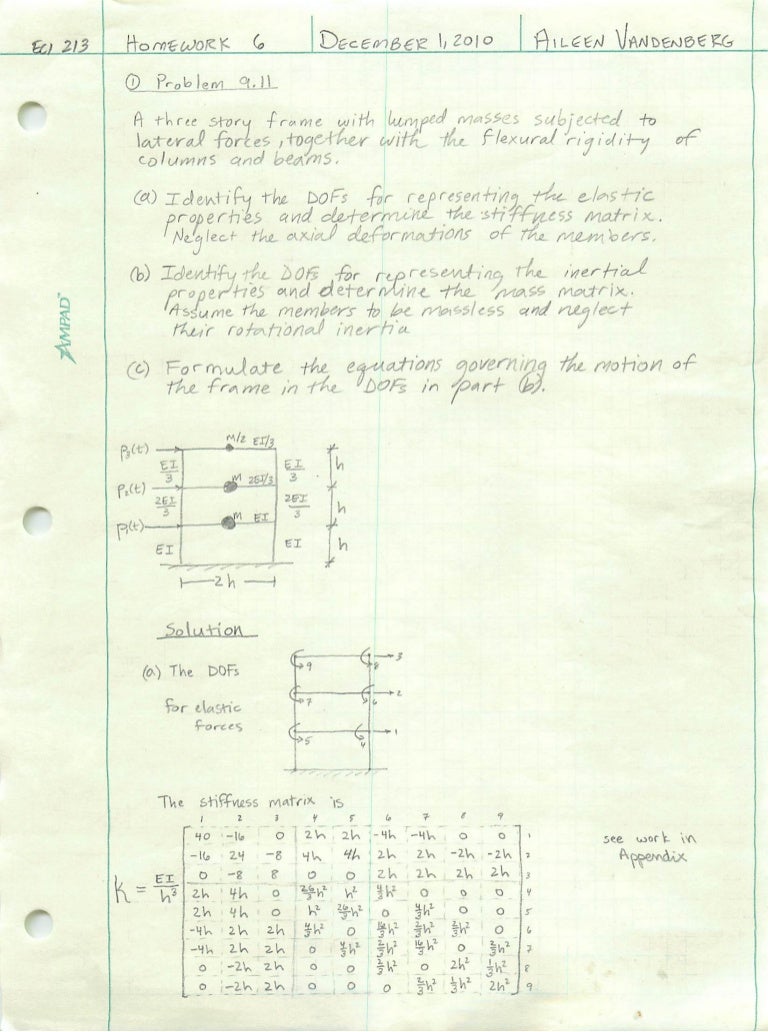 ECI 213 HOMEWORK 6 DECEMBER 1, 2010 AILEEN VANDENBERG
① Problem 9.11
A three story frame with lumped masses subjected to
lateral forces, together with the flexural rigidity of
columns and beams.
(a) Identify the DOFs for representing the elastic
properties and determine the stiffness matrix.
Neglect the axial deformations of the members.
(b) Identify the DOFs for representing the inertial
properties and determine the mass matrix.
Assume the members to be massless and neglect
their rotational inertia
(c) Formulate the equations governing the motion of
the frame in the DOFs in part (b).
AMPAD™
P₃(t) M/2 EI/3
EI/3 EI/3 h
P₂(t) M 2EI/3
2EI/3 2EI/3 h
P₁(t) M EI
EI EI h
2h
Solution
(a) The DOFs
for elastic
forces
9 8 3
7 6 2
5 4 1
The stiffness matrix is
1 2 3 4 5 6 7 8 9
40 -16 0 2h 2h -4h -4h 0 0 1
-16 24 -8 4h 4h 2h 2h -2h -2h 2
0 -8 8 0 0 2h 2h 2h 2h 3
K = EI/h³
2h 4h 0 26/3h² h² 4/3h² 0 0 0 4
2h 4h 0 h² 26/3h² 0 4/3h² 0 0 5
-4h 2h 2h 4/3h² 0 16/3h² 2/3h² 2/3h² 0 6
-4h 2h 2h 0 4/3h² 2/3h² 16/3h² 0 2/3h² 7
0 -2h 2h 0 0 2/3h² 0 2h² 1/3h² 8
0 -2h 2h 0 0 0 2/3h² 1/3h² 2h² 9
see work in
Appendix